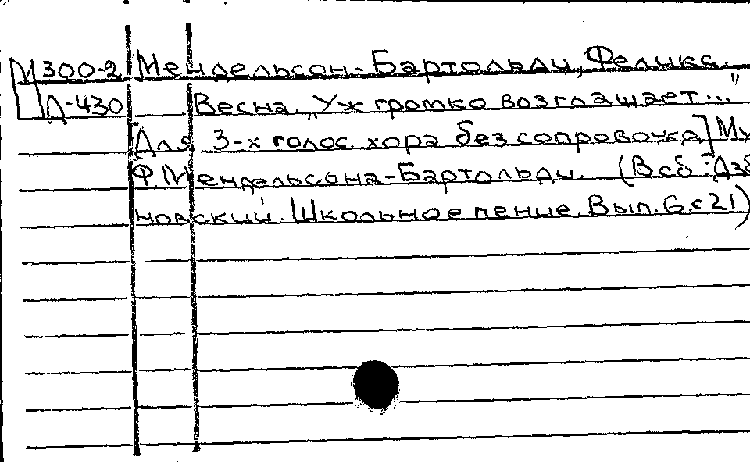 М300-2 Мендельсон-Бартольди, Феликс.
Д-430 Весна. „Уж громко возглашает..."
[Для 3-х голос хора без сопровожд] Му
Ф. Мендельсона-Бартольди. (В сб: Дзб
новский. Школьное пение. Вып. 6. с 21)